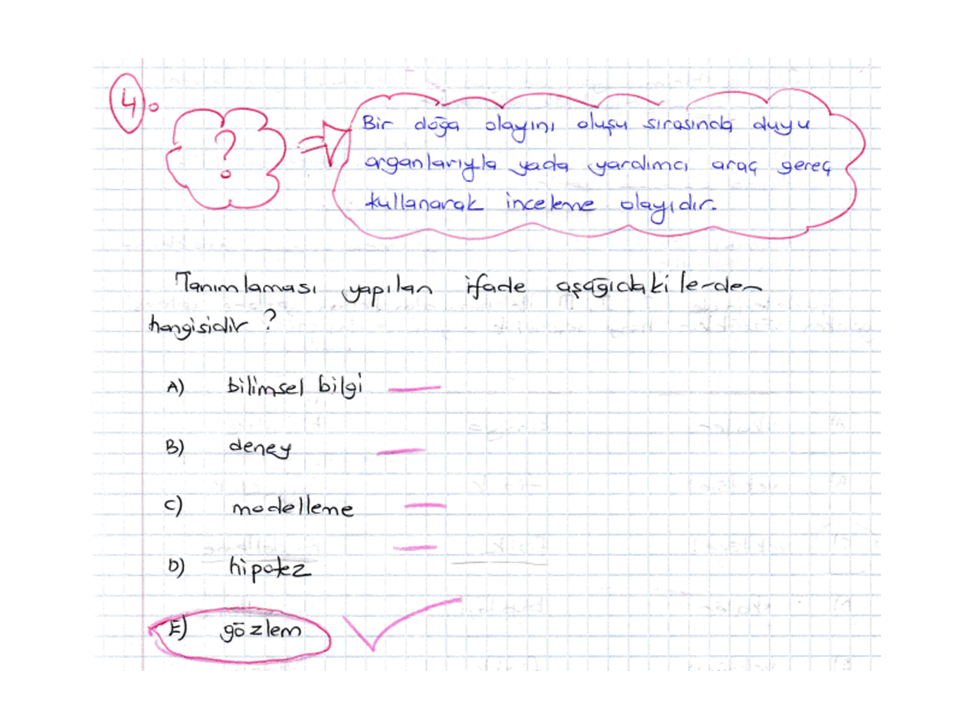 4.
?
Bir doğa olayını oluşu sırasında duyu
organlarıyla yada yardımcı araç gereç
kullanarak inceleme olayıdır.
Tanımlaması yapılan ifade aşağıdakilerden
hangisidir ?
A) bilimsel bilgi
B) deney
C) modelleme
D) hipotez
E) gözlem